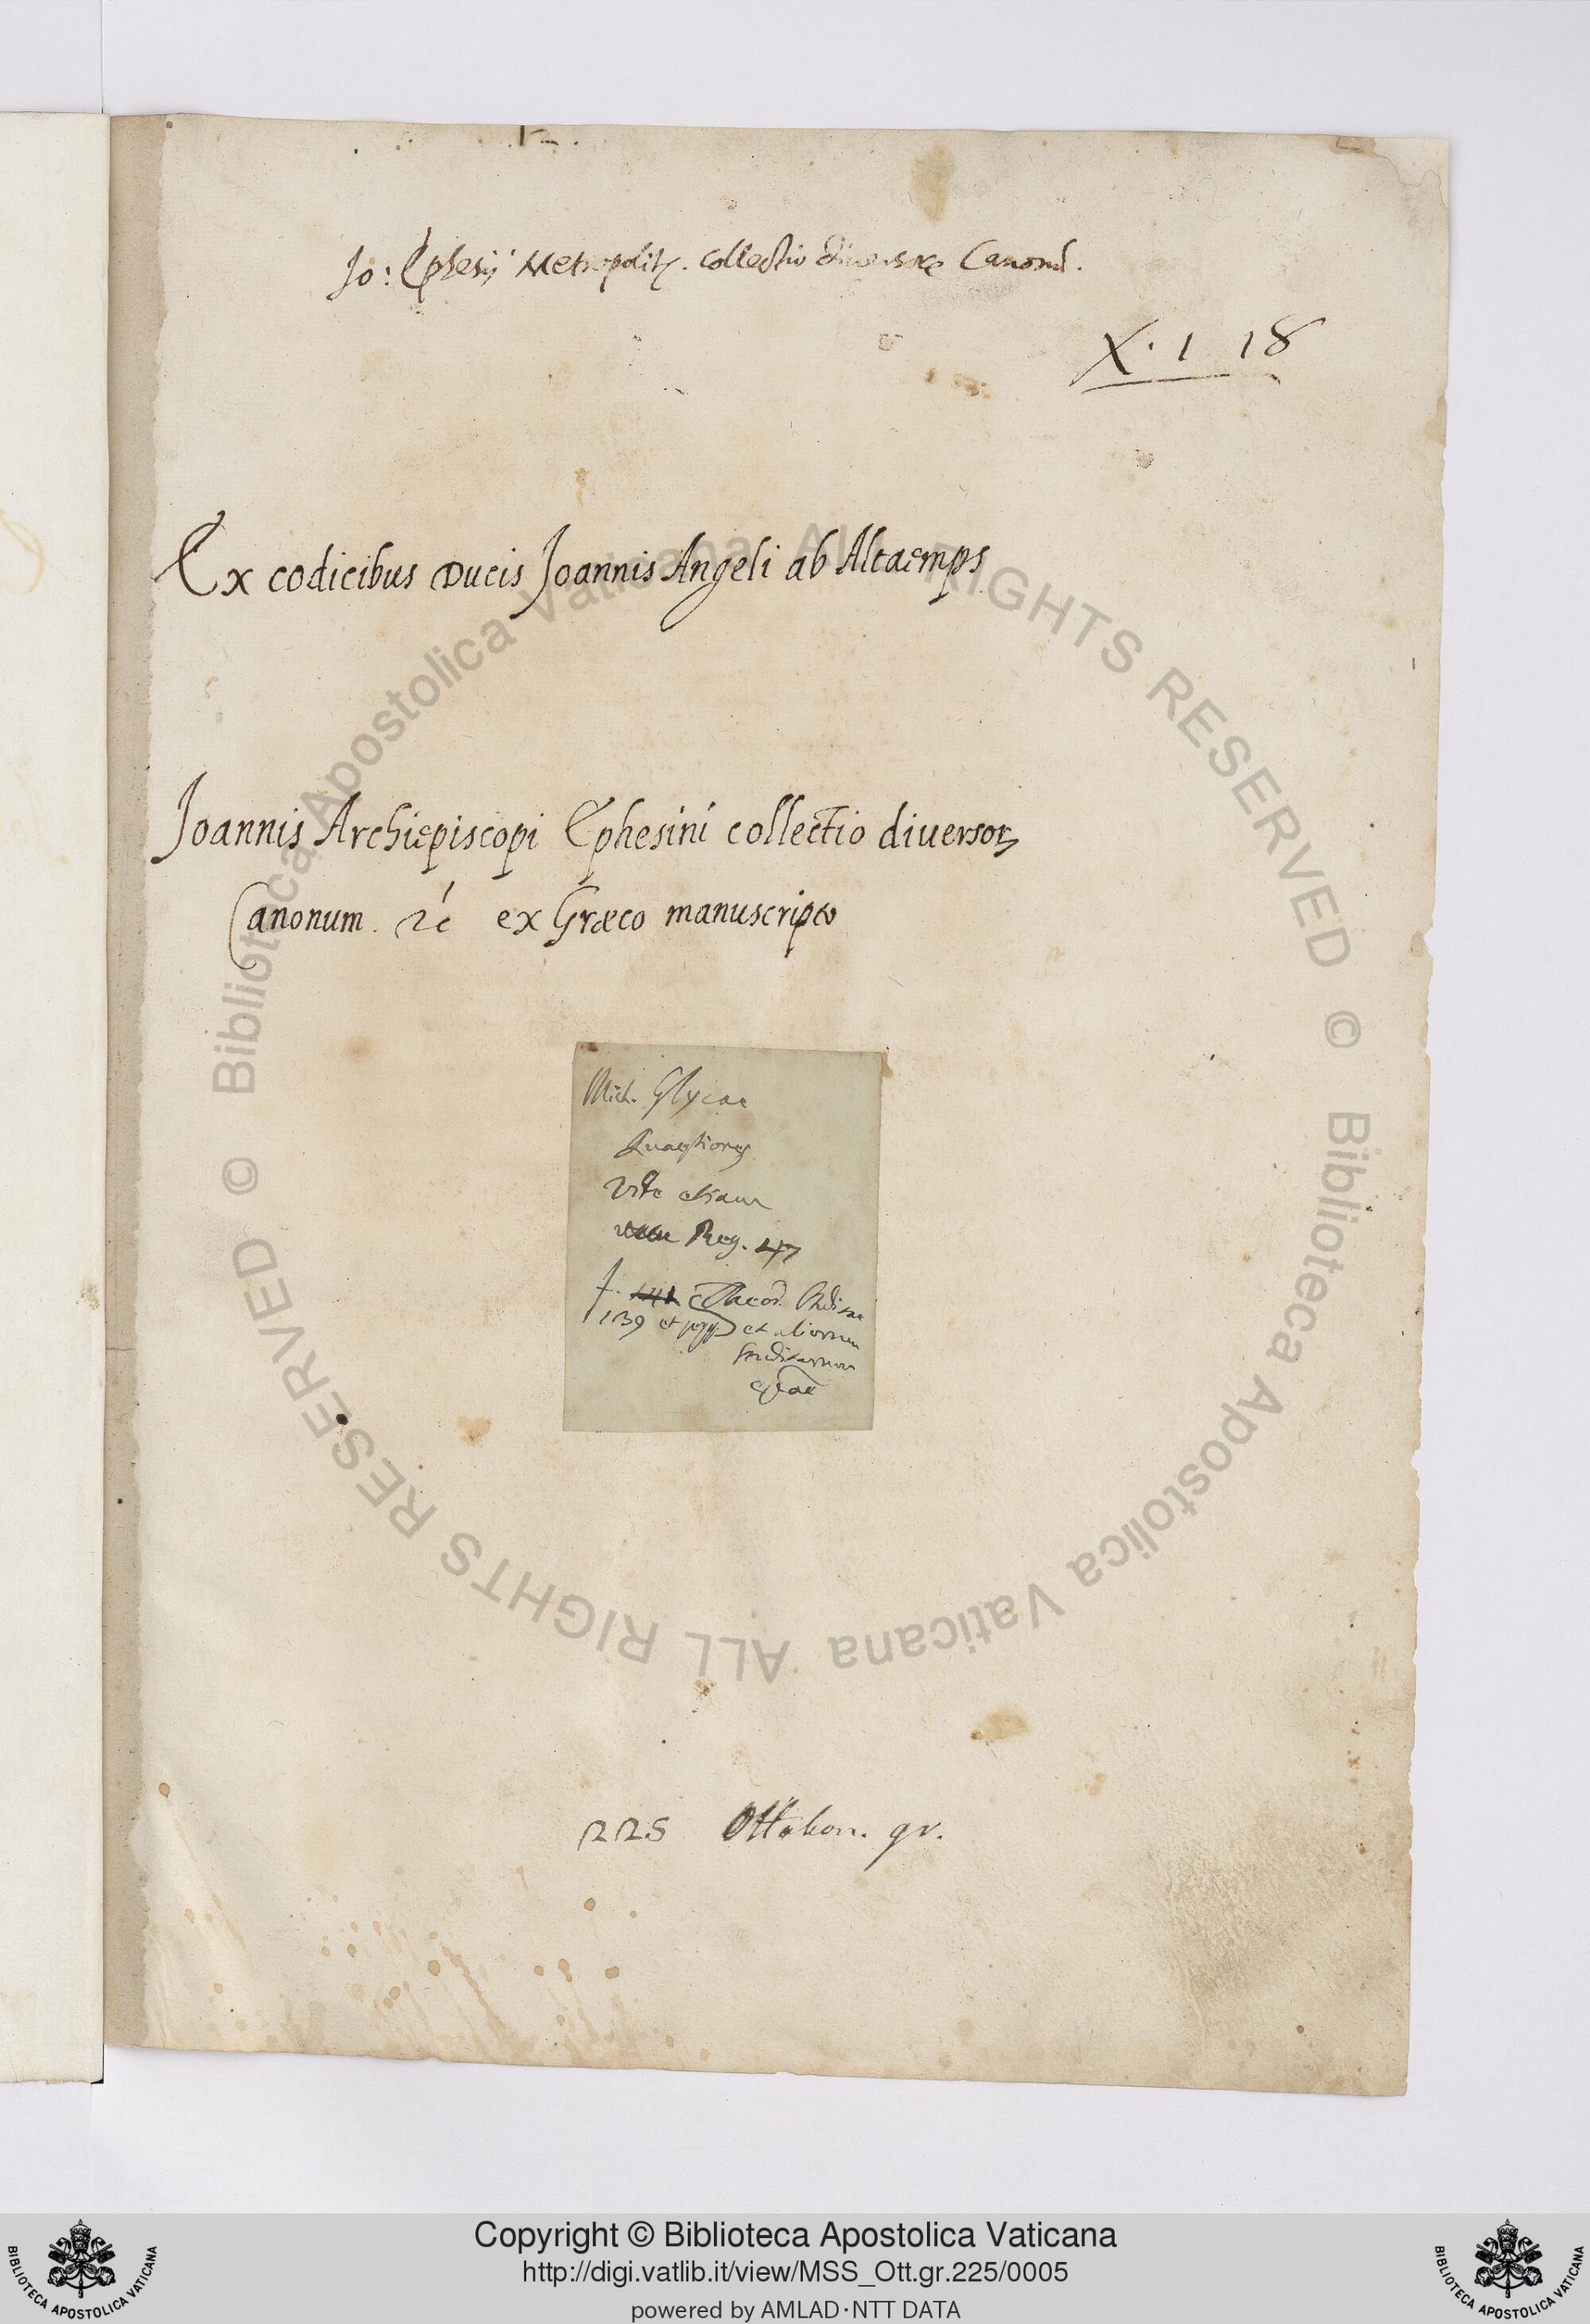 Jo: Ephesij Metropolitę. collectio diversorꝫ Canonū.
X. 1 18
Ex codicibus Ducis Joannis Angeli ab Altaemps
Joannis Archiepiscopi Ephesini collectio diuersorꝫ
Canonum. &c ex Græco manuscripto
Mich. Glycae
Quaestiones
Vide etiam
Reg. 47
f. 141 Theod. Studitae
139 et seqq. et aliorum
Studitarum
225 Ottobon. gr.
© Biblioteca Apostolica Vaticana ALL RIGHTS RESERVED © Biblioteca Apostolica Vaticana ALL RIGHTS RESERVED
Copyright © Biblioteca Apostolica Vaticana
http://digi.vatlib.it/view/MSS_Ott.gr.225/0005
powered by AMLAD·NTT DATA
BIBLIOTECA APOSTOLICA VATICANA
BIBLIOTECA APOSTOLICA VATICANA